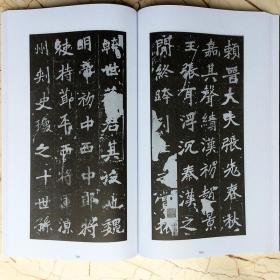 賴晉大夫張老春秋
嘉其聲績漢初趙景
王張耳浮沉秦漢之
間終跨列土之賞
世著君其後也魏
明帝初中西中郎將
使持節平西將軍涼
州刺史瑍之十世孫